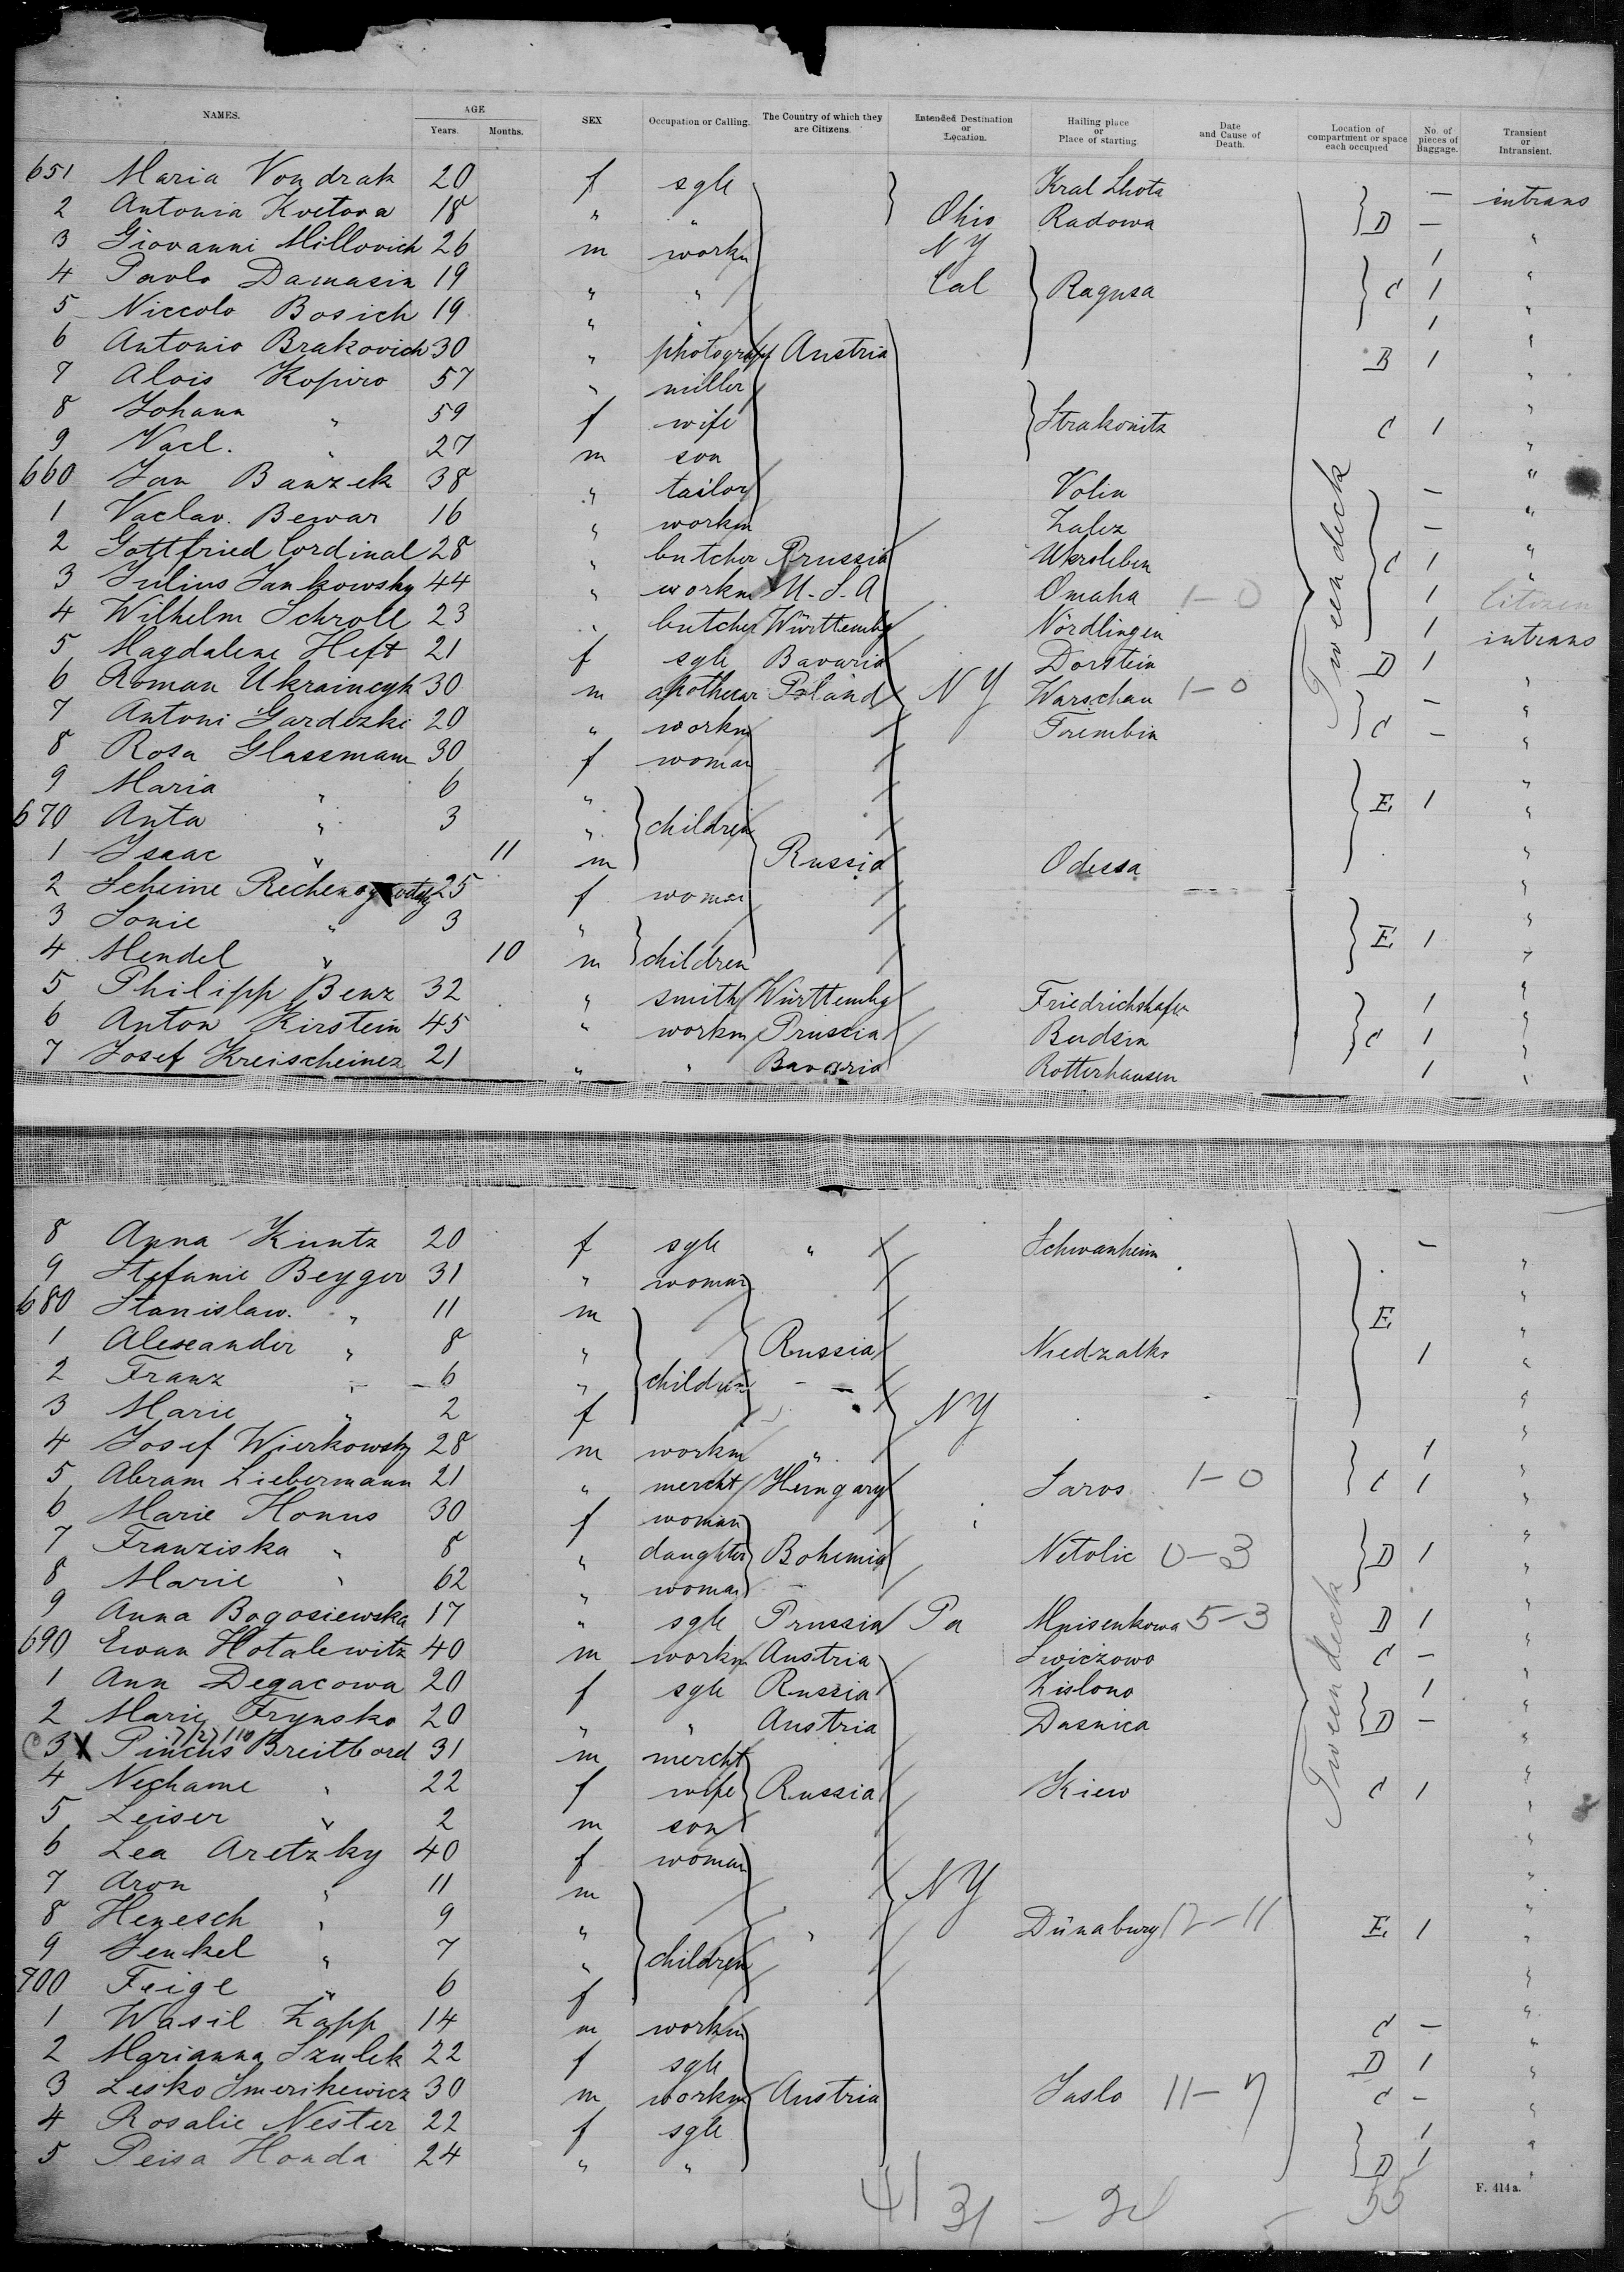 NAMES. AGE SEX Occupation or Calling. The Country of which they are Citizens. Intended Destination or Location. Hailing place or Place of starting Date and Cause of Death. Location of compartment or space each occupied No. of pieces of Baggage. Transient or Intransient.
Years. Months.
651 Maria Vondrak 20 f sgle Kral Lhota — intrans
2 Antonia Kvetova 18 " " Ohio Radowa D — "
3 Giovanni Millovich 26 m workm N Y 1 "
4 Paolo Damasin 19 " " Cal Ragusa C 1 "
5 Niccolo Bosich 19 " " 1 "
6 Antonio Brakovich 30 " photograph Austria B 1 "
7 Alois Kopiro 57 " miller "
8 Johann " 59 f wife Strakonitz C 1 "
9 Vacl. " 27 m son "
660 Jan Banzek 38 " tailor Volin — "
1 Vaclav. Bewar 16 " workm Zalez — "
2 Gottfried Cordinal 28 " butcher Prussia C 1 "
3 Julius Jankowsky 44 " workm U. S. A Omaha 1-0 1 Citizen
4 Wilhelm Schroll 23 " butcher Württembg Nördlingen 1 intrans
5 Magdalene Heft 21 f sgle Bavaria Dorstein D 1 "
6 Roman Ukraincyk 30 m apothecar Poland N Y Warschau 1-0 — "
7 Antoni Gardezki 20 " workm Torembin C — "
8 Rosa Glassmann 30 f woman "
9 Maria " 6 " E 1 "
670 Anta " 3 " children "
1 Isaac " 11 m Russia Odessa "
2 Scheine 25 f woman "
3 Sonie " 3 " E 1 "
4 Mendel " 10 m children "
5 Philipp Benz 32 " smith Württembg Friedrichshafen 1 "
6 Anton Kirstein 45 " workm Prussia Budsin C 1 "
7 Josef Kreischeinez 21 " " Bavaria Rotterhausen 1 "
Tweendeck
8 Anna Kuntz 20 f sgle " Schwanheim — "
9 Stefanie Beyger 31 " woman "
680 Stanislaw. " 11 m E "
1 Alexander " 8 " Russia Niedzalko 1 "
2 Franz " 6 " children "
3 Marie " 2 f N Y "
4 Josef Wierkowsky 28 m workm " 1 "
5 Abram Liebermann 21 " mercht Hungary Saros 1-0 C 1 "
6 Marie Honus 30 f woman "
7 Franziska " 8 " daughter Bohemia Netolic 0-3 D 1 "
8 Marie " 62 " woman "
9 Anna Bogosiewska 17 " sgle Prussia Pa Mnisenkowa 5-3 D 1 "
690 Ewan Hotalewitz 40 m workm Austria Swiczowo C — "
1 Ann Degacowa 20 f sgle Russia Zislono 1 "
2 Marie Frynsko 20 " " Austria Dasnica D — "
C 3 X Pinchs Breitbord 31 m mercht "
4 Nechame " 22 f wife Russia Kiew C 1 "
5 Leiser " 2 m son "
6 Lea Aretzky 40 f woman "
7 Aron " 11 m N Y "
8 Henesch " 9 " " Dünaburg 12-11 E 1 "
9 Jenkel " 7 " children "
700 Feige " 6 f "
1 Wasil Zapp 14 m workm C — "
2 Marianna Szulek 22 f sgle D 1 "
3 Lesko Smerikewicz 30 m workm Austria Jaslo 11-7 C — "
4 Rosalie Nester 22 f sgle 1 "
5 Peisa Honda 24 " " D 1 "
Tweendeck
F. 414a.
41 31